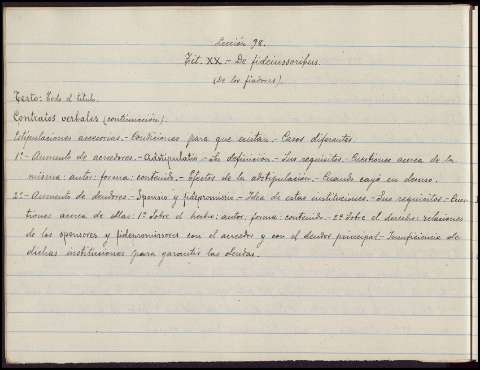 Lección 98.
Tít. XX.- De fideiussoribus.
(De los fiadores).
Texto: Todo el título.
Contratos verbales (continuación).
Estipulaciones accesorias.- Condiciones para que existan.- Casos diferentes.
1º- Aumento de acreedores.- Adstipulatio.- Su definición.- Sus requisitos.- Cuestiones acerca de la
misma: autor: forma: contenido.- Efectos de la adstipulación.- Cuando cayó en desuso.
2º- Aumento de deudores.- Sponsio y fidepromissio.- Idea de estas instituciones.- Sus requisitos.- Cues-
tiones acerca de ellas: 1º Sobre el hecho: autor, forma: contenido.- 2º Sobre el derecho: relaciones
de los sponsores y fidepromissores con el acreedor y con el deudor principal.- Insuficiencia de
dichas instituciones para garantir las deudas.